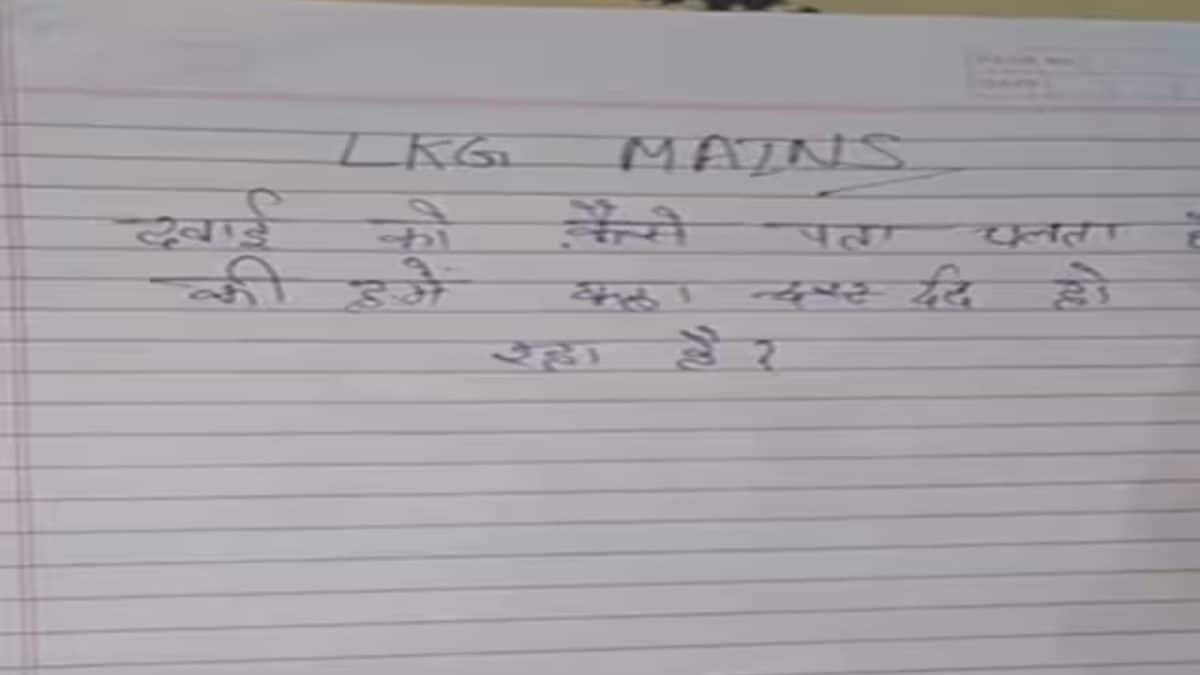 LKG MAINS
दवाई को कैसे पता चलता है
की हमें कहा दर्द हो
रहा है?